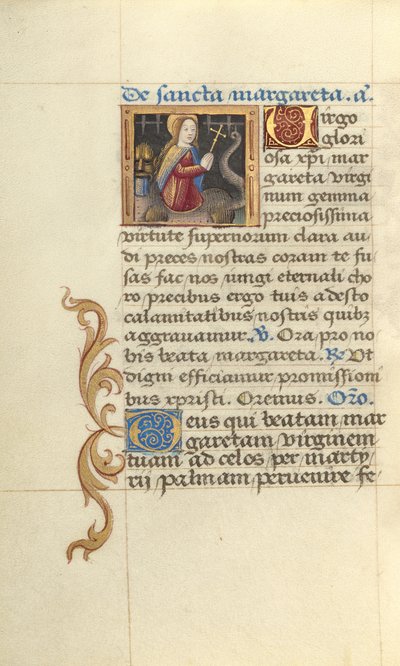 De sancta margareta. a.
Virgo
glori
osa xpi mar
gareta virgi
num gemma
preciosissima
virtute supernorum clara au
di preces nostras coram te fu
sas fac nos iungi eternali cho
ro precibus ergo tuis adesto
calamitatibus nostris quibz
aggrauamur. V. Ora pro no
bis beata margareta. R. Ut
digni efficiamur promissioni
bus xpristi. Oremus. Oro.
Deus qui beatam mar
garetam virginem
tuam ad celos per marty
rii palmam peruenire fe